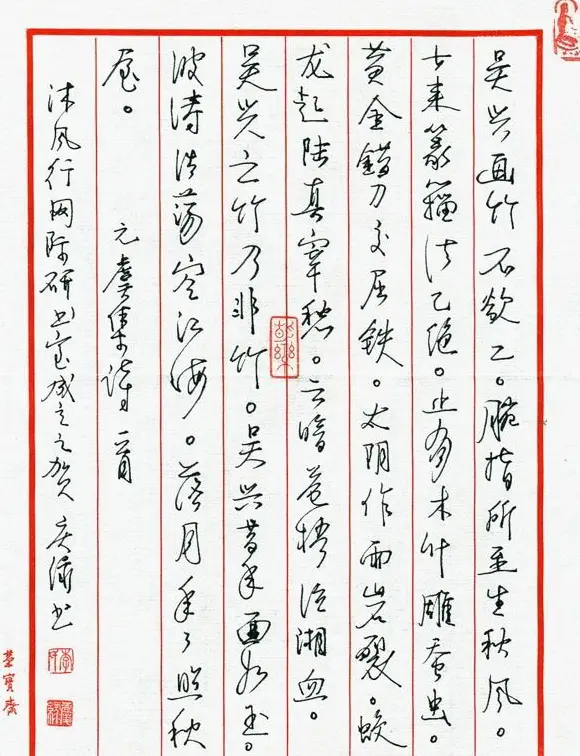 吴兴画竹不欲工。腕指所至生秋风。
古来篆籀法已绝。止有木叶雕蚕虫。
黄金错刀交屈铁。太阴作雨山石裂。蛟
龙起陆真宰愁。云暗苍梧泣湘血。
吴兴之竹乃非竹。吴兴昔年面如玉。
波涛浩荡空江海。落月年々照秋
屋。
元虞集诗一首
沐风行网际研书室成立之贺 庆书
荣宝斋